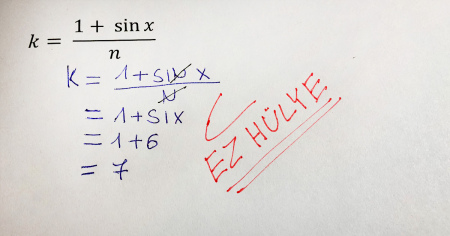 k = (1 + sin x) / n
K = (1 + sin x) / n
= 1 + SIX
= 1 + 6
= 7
EZ HÜLYE